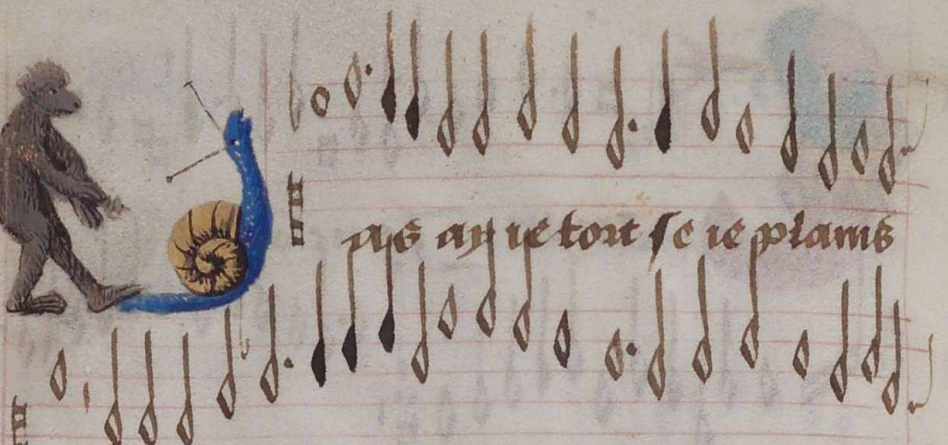 as ay ie tort se ie plains